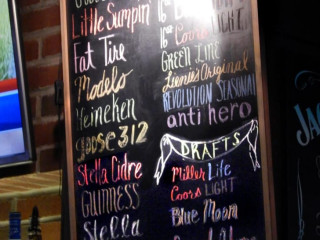 Little Sumpin
Fat Tire
Modelo
Heineken
goose 312
Stella Cidre
GUINNESS
Stella
16oz
16oz Coors LIGHT
GREEN LINE
Lienie's Original
REVOLUTION SEASONAL
anti hero
DRAFTS
Miller Lite
Coors LIGHT
Blue Moon